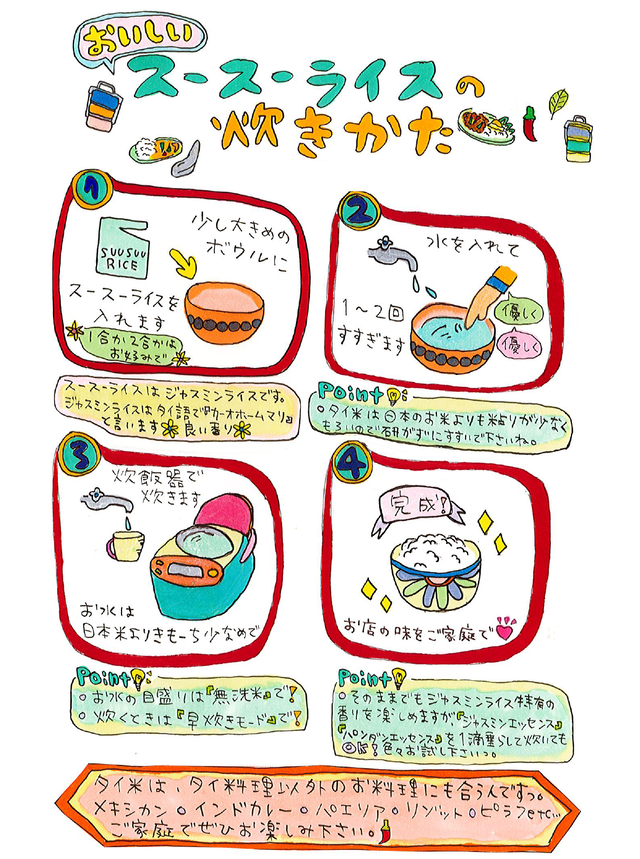 おいしい
スースーライスの
炊きかた
1
少し大きめの
ボウルに
SUUSUU
RICE
スースーライスを
入れます
1合か2合かは
お好みで
スースーライスはジャスミンライスです。
ジャスミンライスはタイ語で『カーオホームマリ』
と言います 良い香り
2
水を入れて
1〜2回
すすぎます
優しく
優しく
Point
○タイ米は日本のお米よりも粘りが少なく
もろいので研がずにすすいで下さいね。
3
炊飯器で
炊きます
お水は
日本米よりきもーち少なめで
Point
○お水の目盛りは『無洗米』で!
○炊くときは『早炊きモード』で!
4
完成!
お店の味をご家庭で
Point
○そのままでもジャスミンライス特有の
香りを楽しめますが『ジャスミンエッセンス』
『パンダンエッセンス』を1滴垂らして炊いても
◎!色々お試し下さいっ。
タイ米は、タイ料理以外のお料理にも合うんですっ。
メキシカン○インドカレー○パエリア○リゾット○ピラフetc…
ご家庭でぜひお楽しみ下さい。